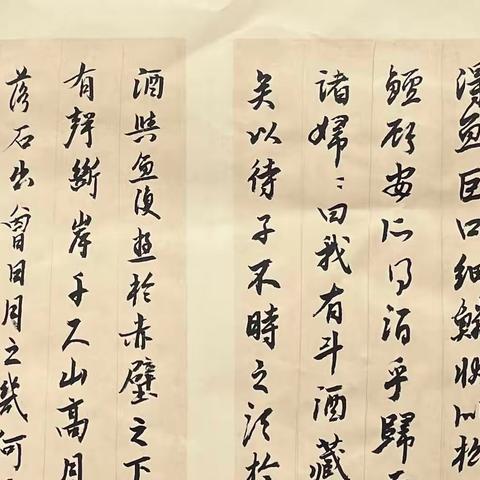 得魚巨口細鱗狀似松
鱸顧安所得酒乎歸而
諸婦〻曰我有斗酒藏
矣以待子不時之須於
酒與魚復遊於赤壁之下
有聲斷岸千尺山高月
落石出曾日月之幾何